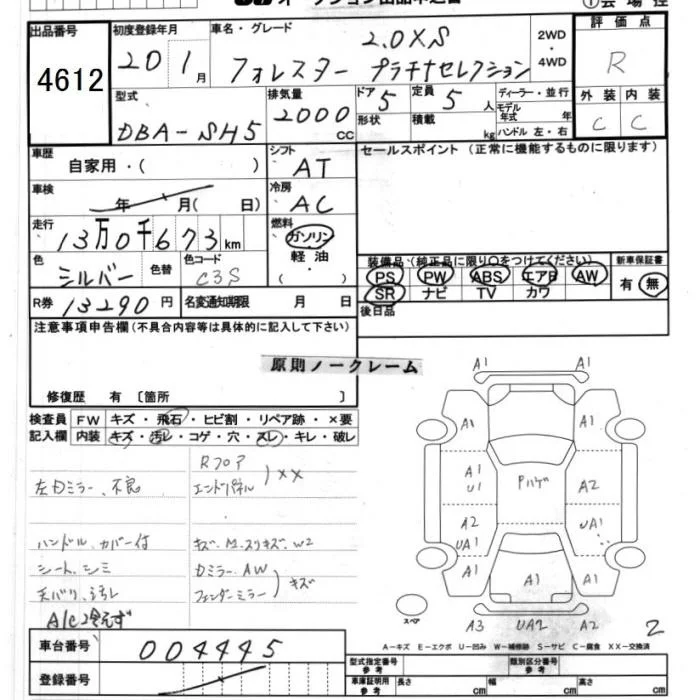 出品番号
4612
初度登録年月
20 1 月
車名・グレード
2.0XS
フォレスター プラチナセレクション
2WD
・
4WD
評価点
R
外装 内装
C C
型式
DBA-SH5
排気量
2000
CC
ドア
5
形状
定員
5 人
積載
kg
ディーラー・並行
モデル
年式 年
ハンドル 左・右
車歴
自家用・( )
シフト
AT
セールスポイント(正常に機能するものに限ります)
車検
年 月( 日)
冷房
AC
走行
13万0千673km
燃料
ガソリン
軽油
・
( )
色
シルバー
色替
色コード
C3S
装備品(純正品に限り○をつけてください)
PS PW ABS エアB AW
SR ナビ TV カワ
新車保証書
有 無
R券 13290 円
名変通知期限 月 日
後日品
注意事項申告欄(不具合内容等は具体的に記入して下さい)
原則ノークレーム
修復歴 有 〔箇所 〕
検査員 FW キズ・飛石・ヒビ割・リペア跡・×要
記入欄 内装 キズ・汚レ・コゲ・穴・スレ・キレ・破レ
Rフロア
エンドパネル
XX
左カミラー、不良
ハンドル、カバー付
シート、シミ
天バリ、汚レ
A/C冷えず
キズ、M、スリキズ、W2
カミラー、AW
フェンダーミラー
キズ
A1 A1
A1 A1
A1
U1
Pハゲ
A2
A2
UA1
UA1
A1 A1 A1
スペア
A3 UA2 A2
2
A-キズ E-エクボ U-凹み W-補修跡 S-サビ C-腐食 XX-交換済
車台番号
004445
登録番号
型式指定番号
参考
類別区分番号
参考
車庫証明用
参考
長さ cm
幅 cm
高さ cm